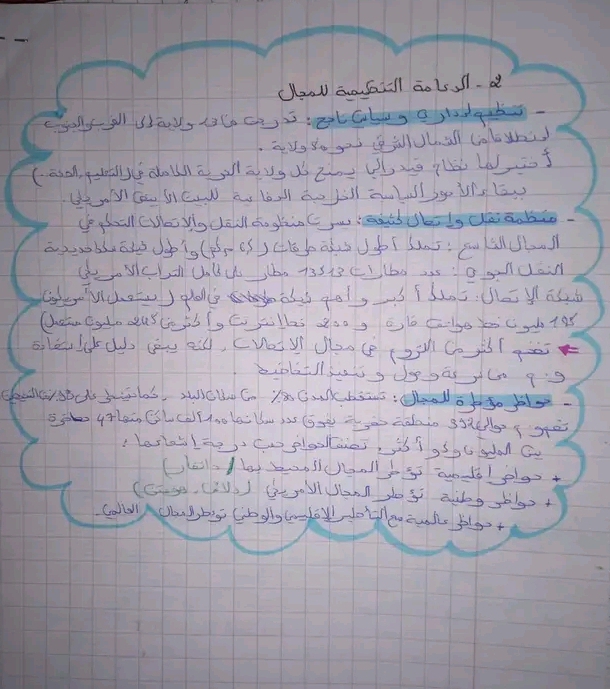 2 - الدعامة التنظيمية للمجال
- تنظيم إداري وسياسي ناجح : تدريجي من 13 ولاية إلى الغرب والجنوب
انطلاقا من الشمال الشرقي نحو 50 ولاية .
أختير لها نظام فيدرالي يمنح كل ولاية الحرية الكاملة في ( التعليم، الصحة ..)
ببقاء الأمور السياسة الخارجية الدفاعية للبيت الأبيض الأمريكي .
- منظمة نقل واتصال كثيفة : يسرت منظومة النقل والاتصالات التحكم في
المجال الشاسع : تملك أطول شبكة طرقات ( م كم) وأطول شبكة سكة حديدية
النقل الجوي : عدد مطارات 13513 مطار على كامل التراب الأمريكي
شبكة الاتصال : تملك أكبر وأهم شبكة في العالم ( يستعمل الأمريكيون
195 مليون خط هواتف قارة و خط انترنت وأكثر من 245 مليون مستعمل)
تضم أكثر من الثروم في مجال الاتصالات، لكنه يبقى دليل على استفادة
و.م.أ من سرعة وصول وتنفيذ
- حواضر مؤطرة للمجال : تستقطب المدن 80٪ من سكان البلد، كما تسيطر على
تضم و.م حوالي 352 منطقة حضرية يفوق عدد سكانها 100 ألف ساكن منها 47 حاضرة
بين المليونا و أكثر، تصنف الحواضر حسب درجة إشعاعها :
+ حواضر إقليمية تؤطر المجال المحيط بها ( دانفار)
+ حواضر وطنية تؤطر المجال الأمريكي ( دلاس، هيوستن)
+ حواضر عالمية مع التأطير الإقليمي والوطني تؤطر المجال العالمي .